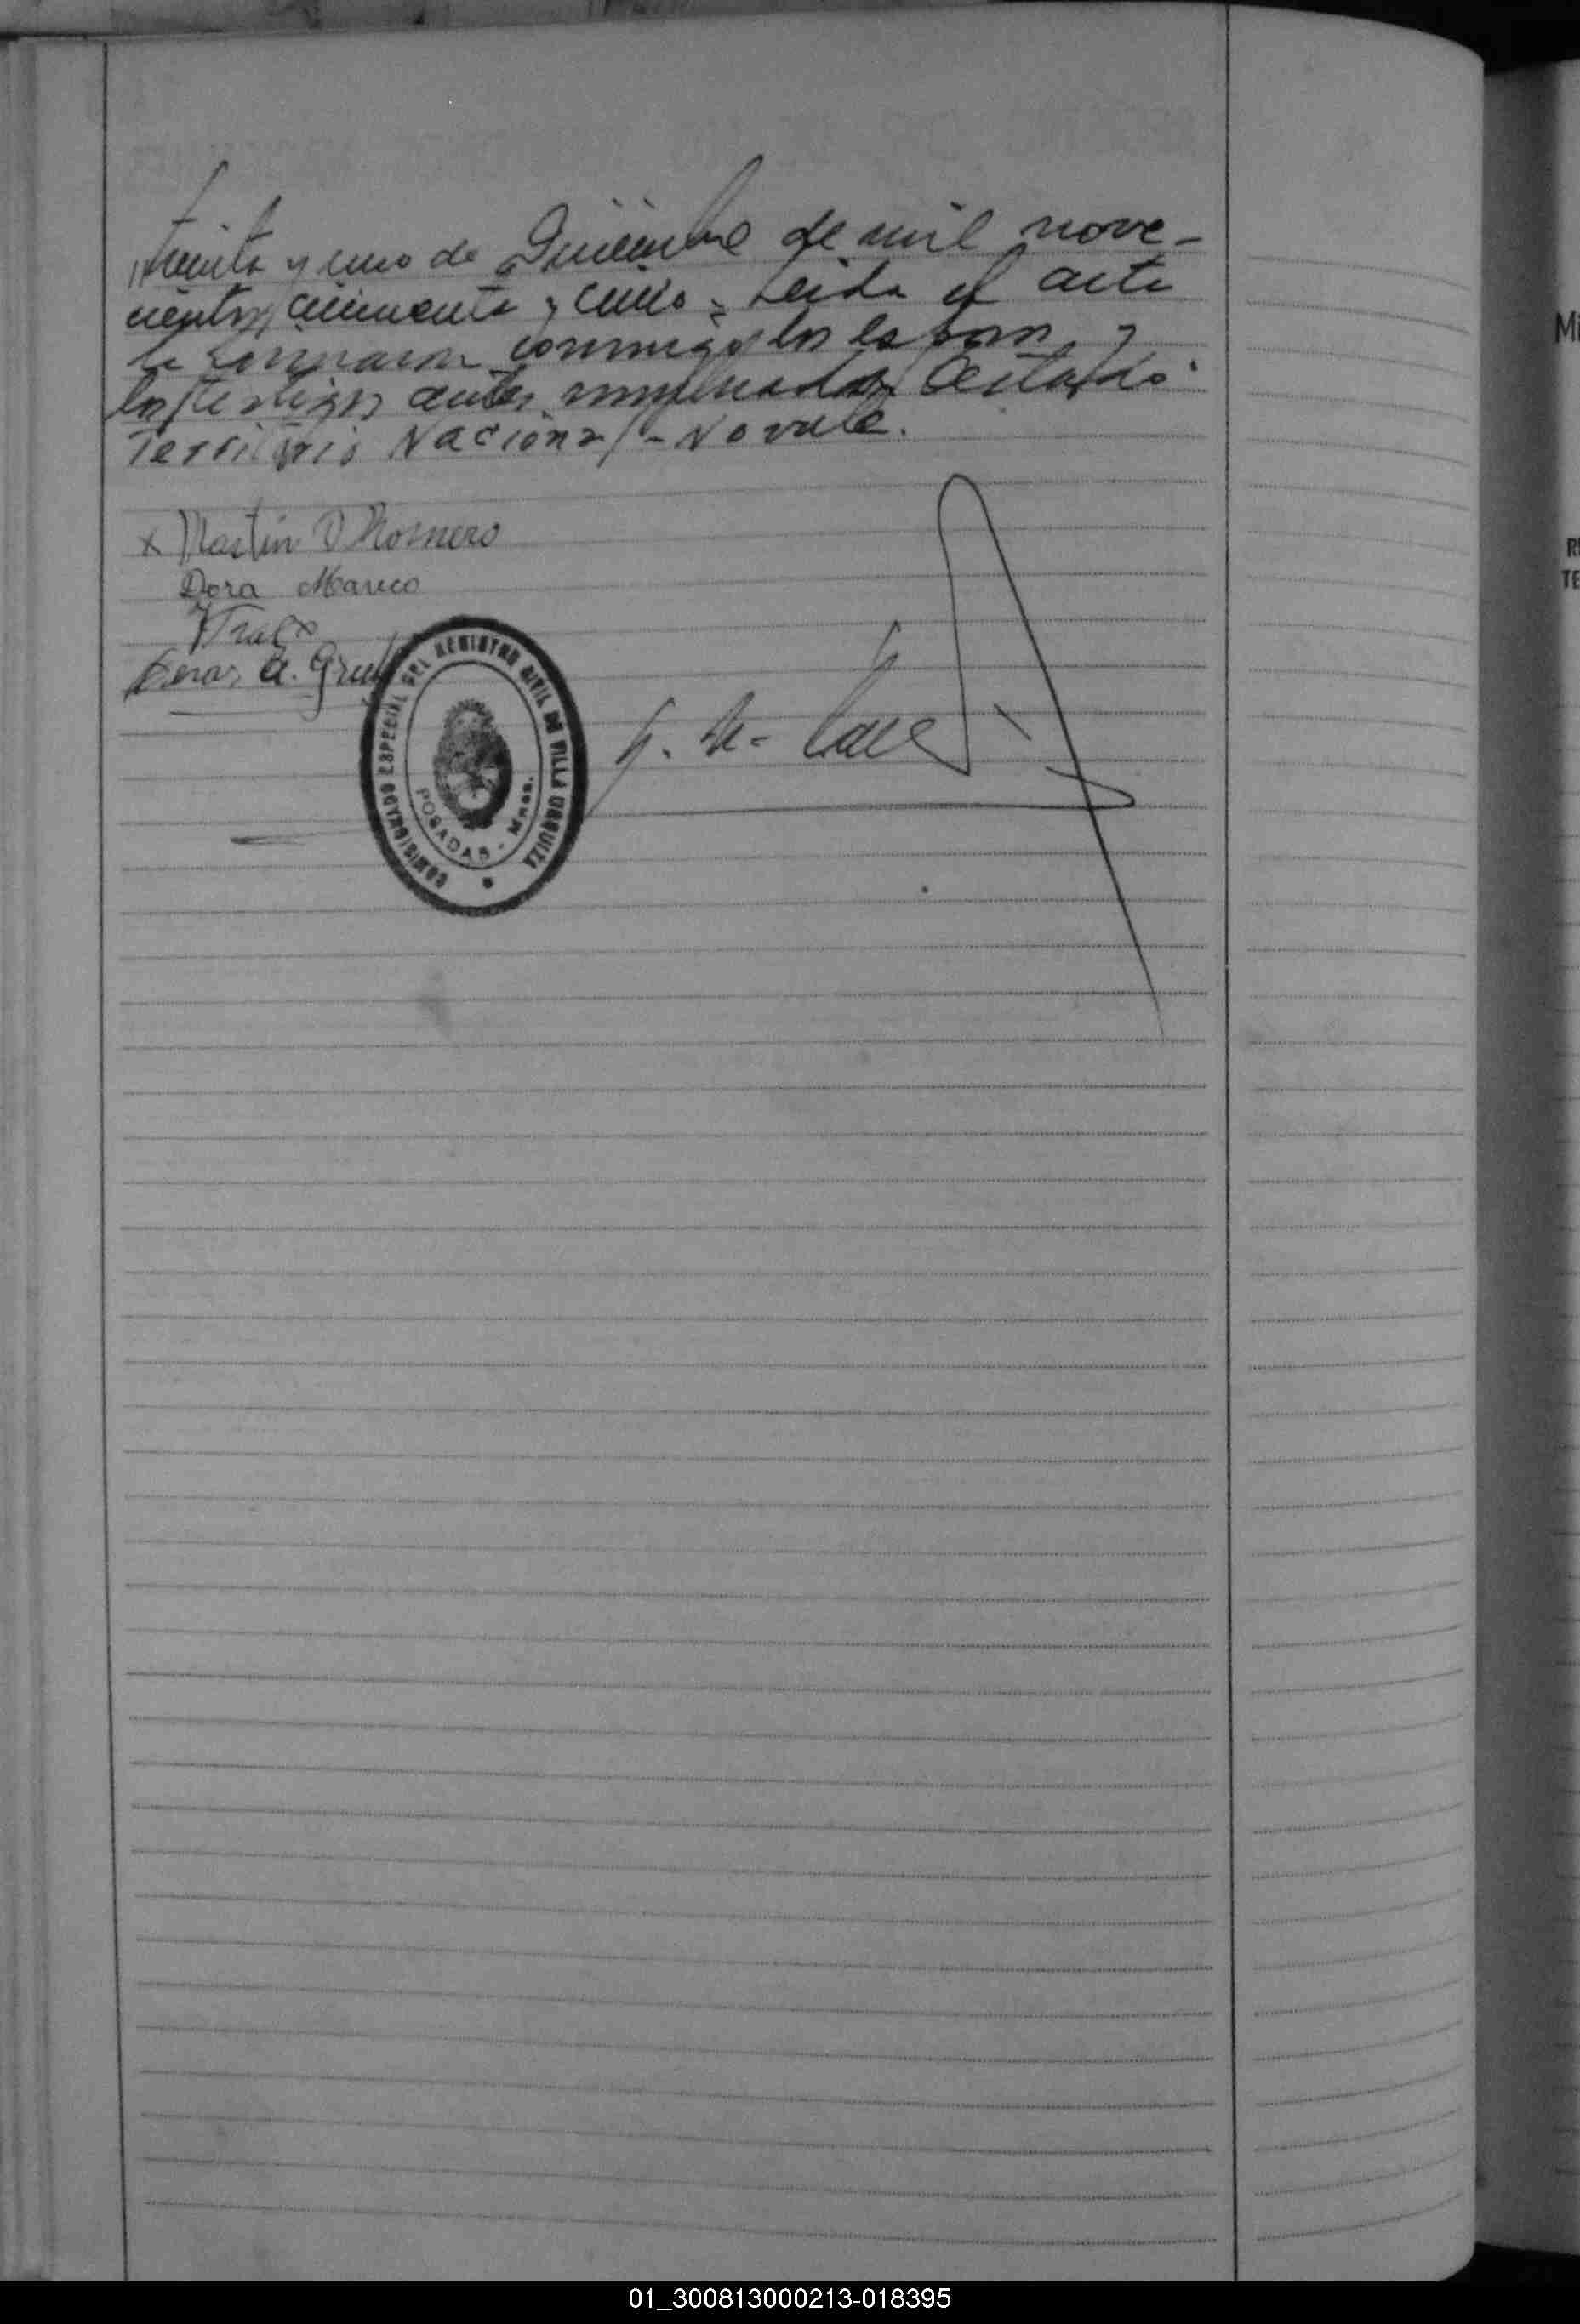 treinta y uno de Diciembre de mil nove-
cientos cincuenta y cinco = Leida el acta
la firmaron conmigo los esposos y
los testigos antes nombrados Testado:
Territorio Nacional - No vale.
x Martin D Romero
Dora Marco
Cesar A.
COMISIONADO ESPECIAL DEL REGISTRO CIVIL DE VILLA URQUIZA
POSADAS - Mnes.
Mi
RE
TE
01_300813000213-018395